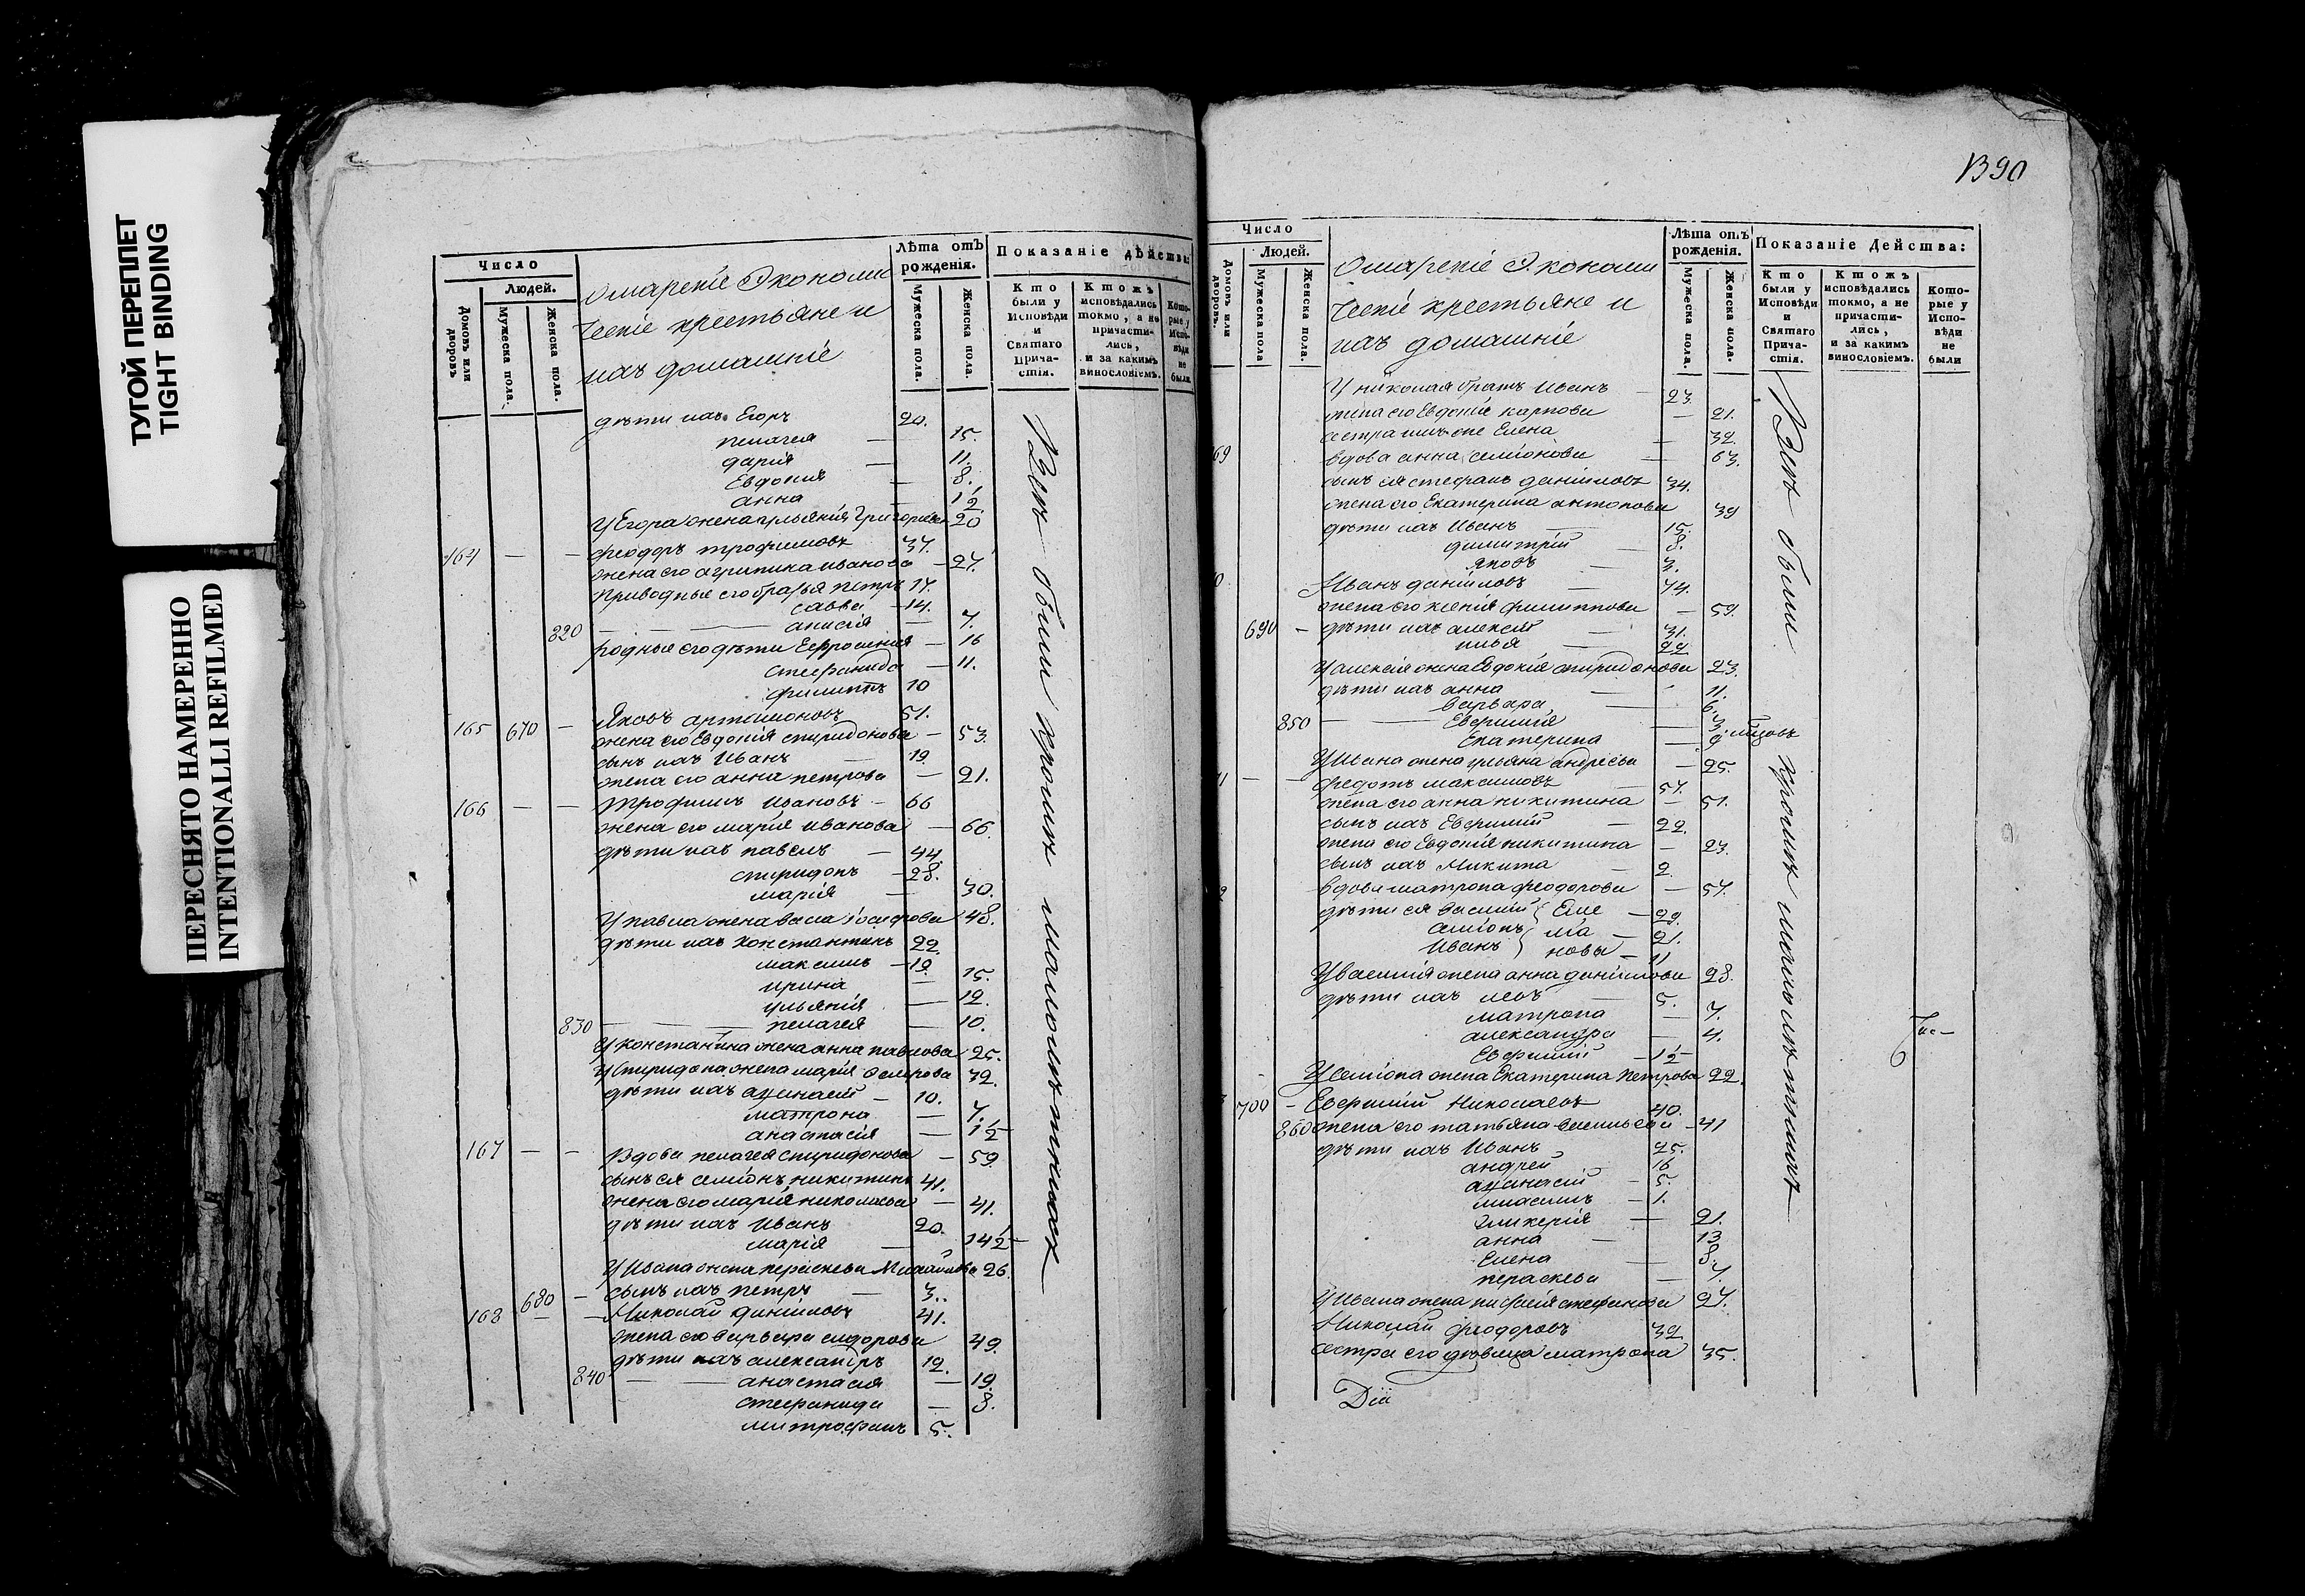 ТУГОЙ ПЕРЕПЛЕТ
TIGHT BINDING
ПЕРЕСНЯТО НАМЕРЕННО
INTENTIONALLI REFILMED
Число
Людей.
Домовъ или дворовъ
Мужеска пола.
Женска пола.
Экономи
ческіе крестьяне и
ихъ домашніе
Лѣта отъ рожденія.
Мужеска пола.
Женска пола.
Показаніе дѣйства:
Кто были у Исповѣди и Святаго Прича-стія.
Ктожъ исповѣдались токмо, а не причасти-лись, и за какимъ винословіемъ.
Кото-рые у Испо-вѣди не были
дѣти ихъ Егоръ 20.
пелагея — 15.
дарія — 11.
Евдокия — 8.
анна — 1/2
У Егора жена ульянія Григорьева 20
164 — — феодоръ трофимовъ 37.
жена его агрипина иванова — 27.
Приводные его братья петръ 17.
савва — 14.
820 — анисія — 7.
родные его дѣти Ефросиния — 16
стефанида — 11.
филиппъ 10
165 670 — Яковъ артемоновъ 51.
жена его Евдокія спиридонова — 53.
сынъ ихъ Иванъ — 19
жена его анна петрова — 21.
166 — — Трофимъ Ивановъ — 66
жена его марія иванова — 66.
дѣти ихъ павелъ — 44.
спиридонъ — 28.
марія — 30.
У павла жена васа іосифова 48.
дѣти ихъ константинъ 22.
максимъ — 19.
ирина — 15.
ульянія — 12.
830 — пелагея — 10.
У константина жена анна павлова 25.
У Спиридона жена марія 32.
дѣти ихъ афанасій — 10.
матрона — 7.
анастасія — 1/2
167 — — Вдова пелагея спиридонова — 59
сынъ ея семіонъ никитинъ 41.
жена его марія николаева — 41.
дѣти ихъ Иванъ 20.
марія — 14 1/2
У Ивана жена пераскева Михайлова 26.
680 — сынъ ихъ петръ — 3.
168 — — Николай даніиловъ 41.
жена его варвара сидорова 49.
дѣти ихъ александръ 12.
840 — анастасія — 19.
стефанида — 8.
митрофанъ 5.
Всѣ были кромѣ малолѣтнихъ
1390
Число
Людей.
Домовъ или дворовъ.
Мужеска пола
Женска пола.
Экономи
ческіе крестьяне и
ихъ домашніе
Лѣта отъ рожденія.
Мужеска пола.
Женска пола.
Показаніе Действа:
Кто были у Исповѣди и Святаго Прича-стія.
Ктожъ исповѣдались токмо, а не причасти-лись, и за какимъ винословіемъ.
Кото-рые у Испо-вѣди не были
У николая братъ Иванъ — 23.
жена его Евдокіе карпова — 21.
сестра Елена — 32.
69 вдова анна семіонова — 63.
сынъ ея стефанъ даниловъ 34.
жена его Екатерина антонова 39
дѣти ихъ Иванъ — 15.
димитрій — 8.
яковъ — 3.
0 Иванъ даніиловъ — 74.
жена его ксенія филиппова — 59.
690 — дѣти ихъ алексей — 31.
илья — 22.
У алексія жена Евдокія спиридонова 23.
дѣти ихъ анна — 11.
варвара — 6.
850 — Евфимія — 3
Екатерина — 9 мѣсяцовъ
У Ивана жена ульяна андреева — 25.
1 — — федотъ максимовъ — 57.
жена его анна никитина — 51.
сынъ ихъ Евфимій — 22.
жена его Евдокія никитина — 23.
сынъ ихъ Никита — 2.
2 вдова матрона феодорова — 57.
дѣти ея Василій { Еме — 29.
симіонъ { лia — 21.
Иванъ } новы — 11
У василія жена анна даніилова 28.
дѣти ихъ левъ — 5.
матрона — 7.
александра — 4.
Евфимій — 1/2
У семіона жена Екатерина петрова 22.
700 — Евфимій Николаевъ 40.
860 жена его татьяна васильева — 41
дѣти ихъ Иванъ 25.
андрей 16
афанасій — 5.
— 1.
гликерія — 21.
анна — 13
Елена — 8.
пераскева — 7.
У Ивана жена стефанова 27.
Николай феодоровъ 32
сестра его дѣвица матрона 35.
Всѣ были кромѣ малолѣтнихъ